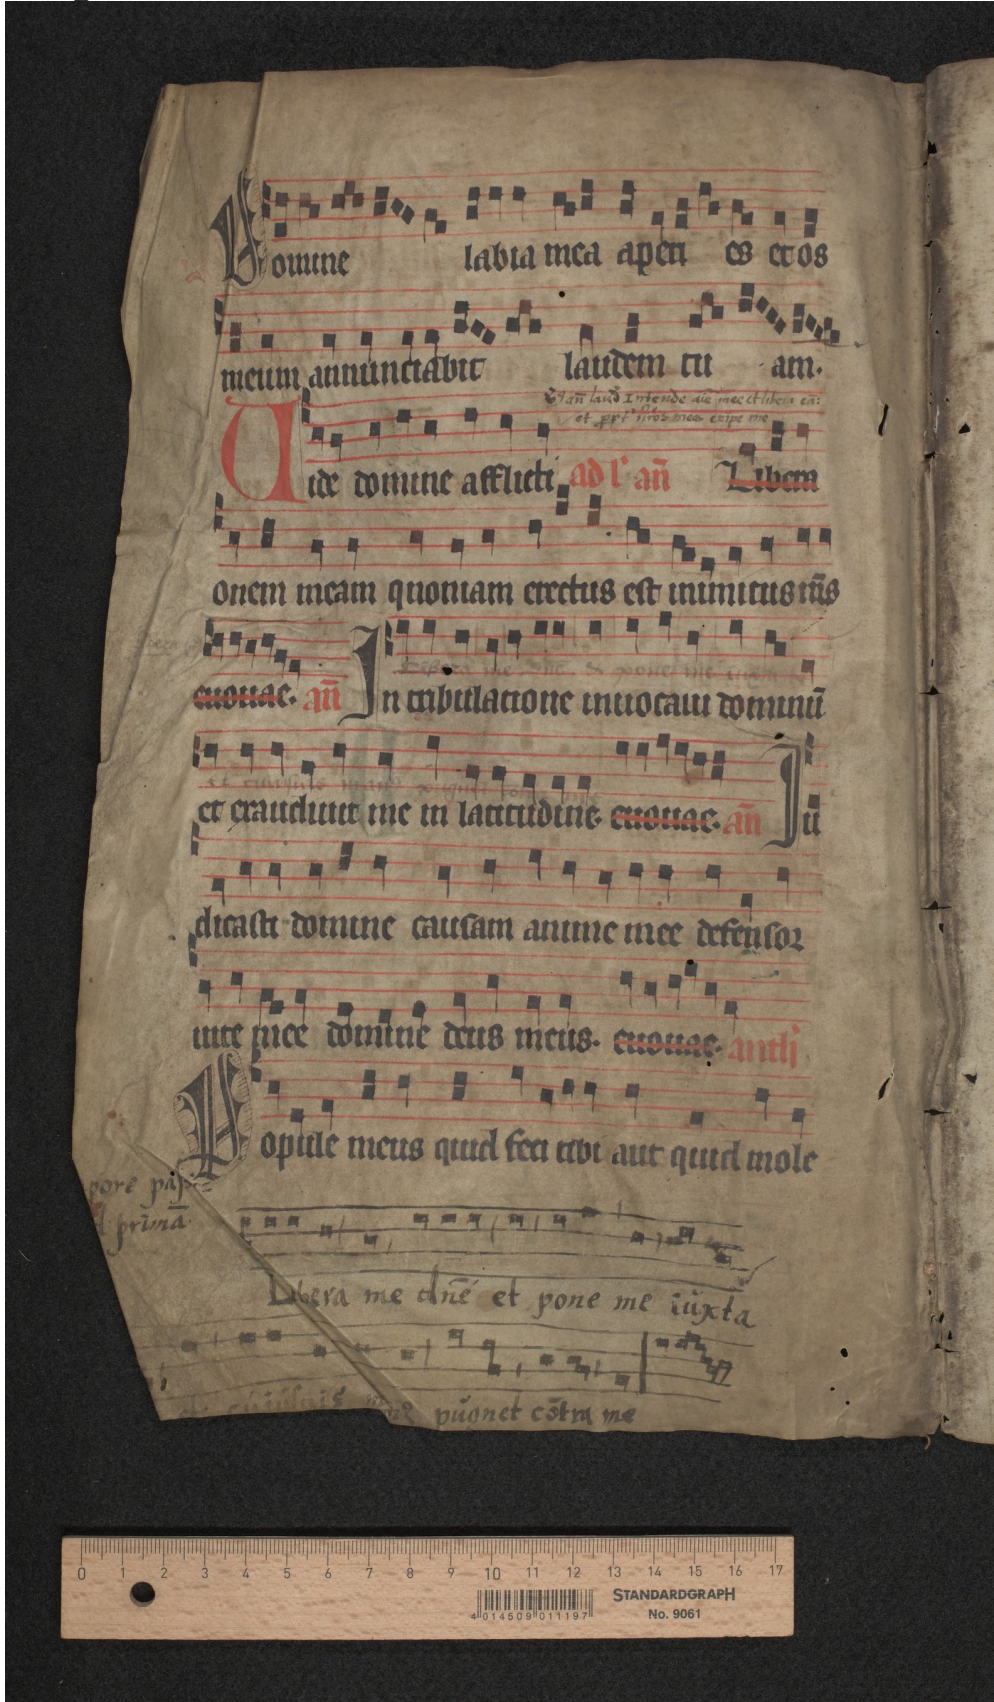 Domine labia mea aperi es et os
meum annunciabit laudem tu am.
et ꝓpt̄ me eripe me
Uide domine afflicti ad l' an̄ Libera
onem meam quoniam erectus est inimicus m̄s
euouae. an̄ In tribulatione inuocaui dominū
et exaudiuit me in latitudine euouae. an̄ Iu
dicasti domine causam anime mee defensor
uite mee domine deus meus. euouae. anth
Popule meus quid feci tibi aut quid mole
pore
primā
Libera me dn̄e et pone me iuxta
pugnet cōtra me
0 1 2 3 4 5 6 7 8 9 10 11 12 13 14 15 16 17
4 014509 011197
STANDARDGRAPH
No. 9061